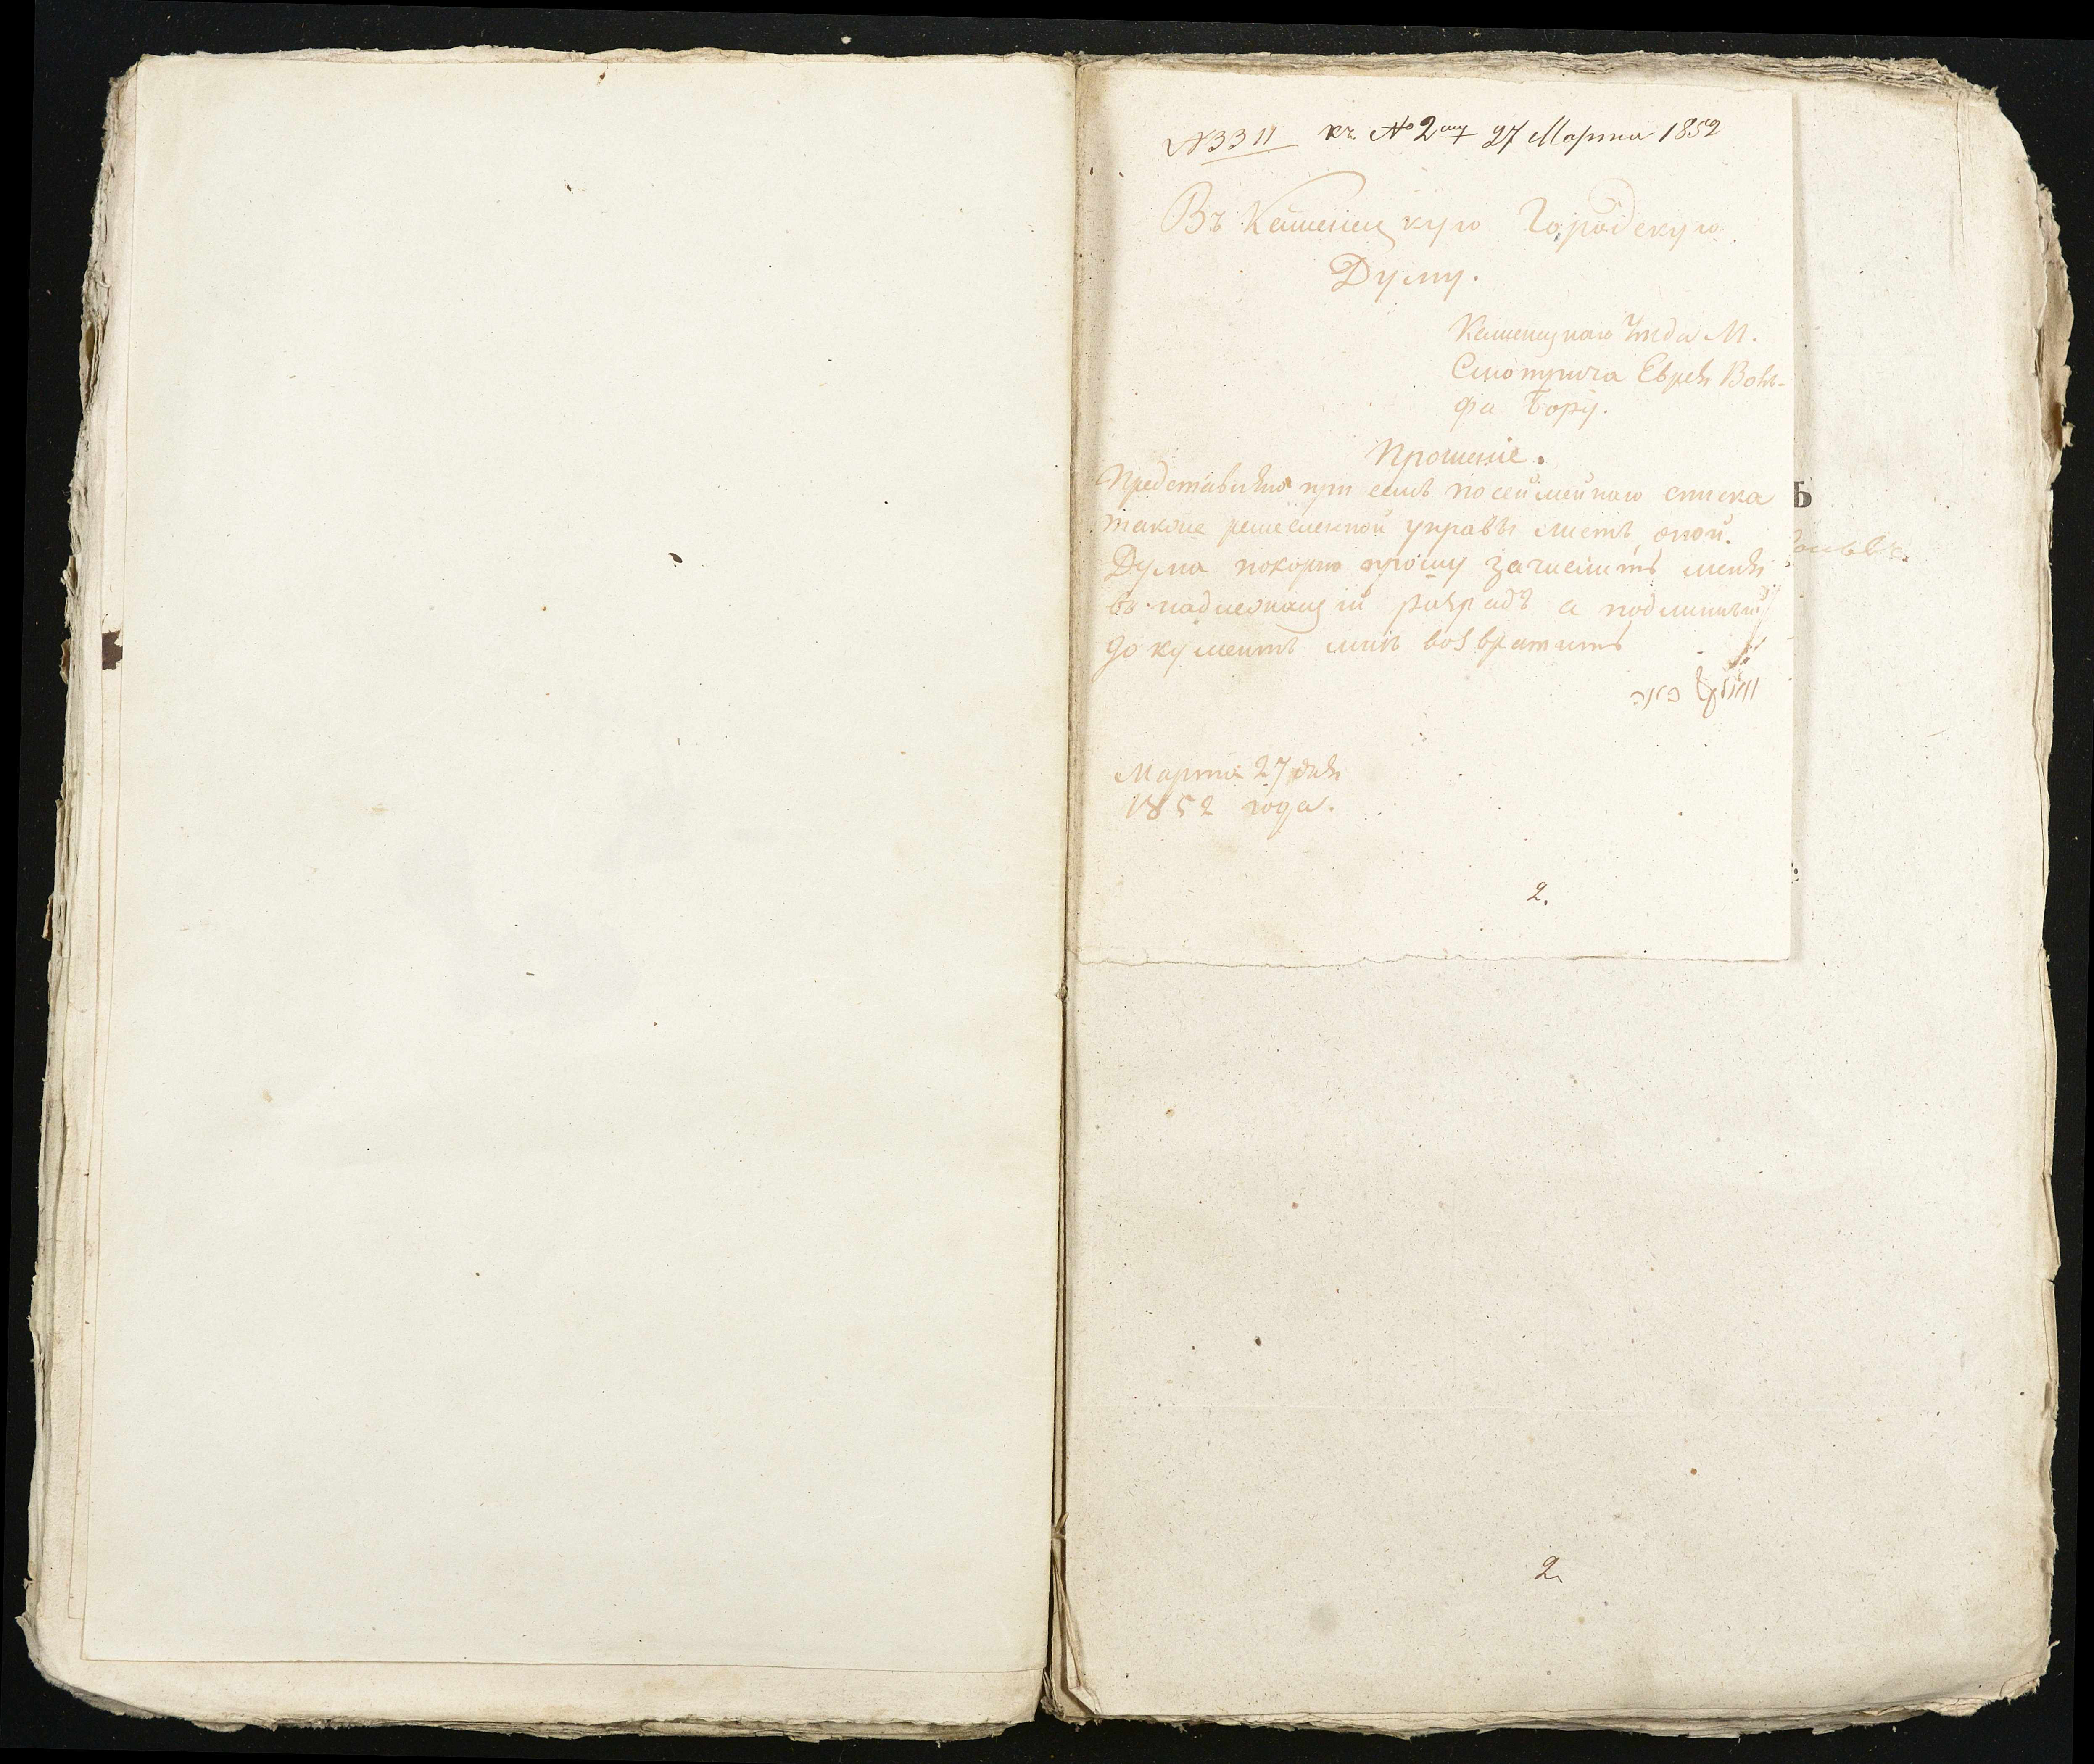 № 3311 къ № 2 му 27 Марта 1852
Въ Каменецкую Городскую
Думу.
Каменецкаго Уезда М.
Смотрича Еврея Воль-
фа
Прошеніе.
Представляю при семъ посемейнаго списка
также ремесленной управы листъ оной.
Дума покорно прошу зачислить меня
въ надлежащій разрядъ а подлинный
документъ мнѣ возвратить
Марта 27 дня
1852 года.
2.
2